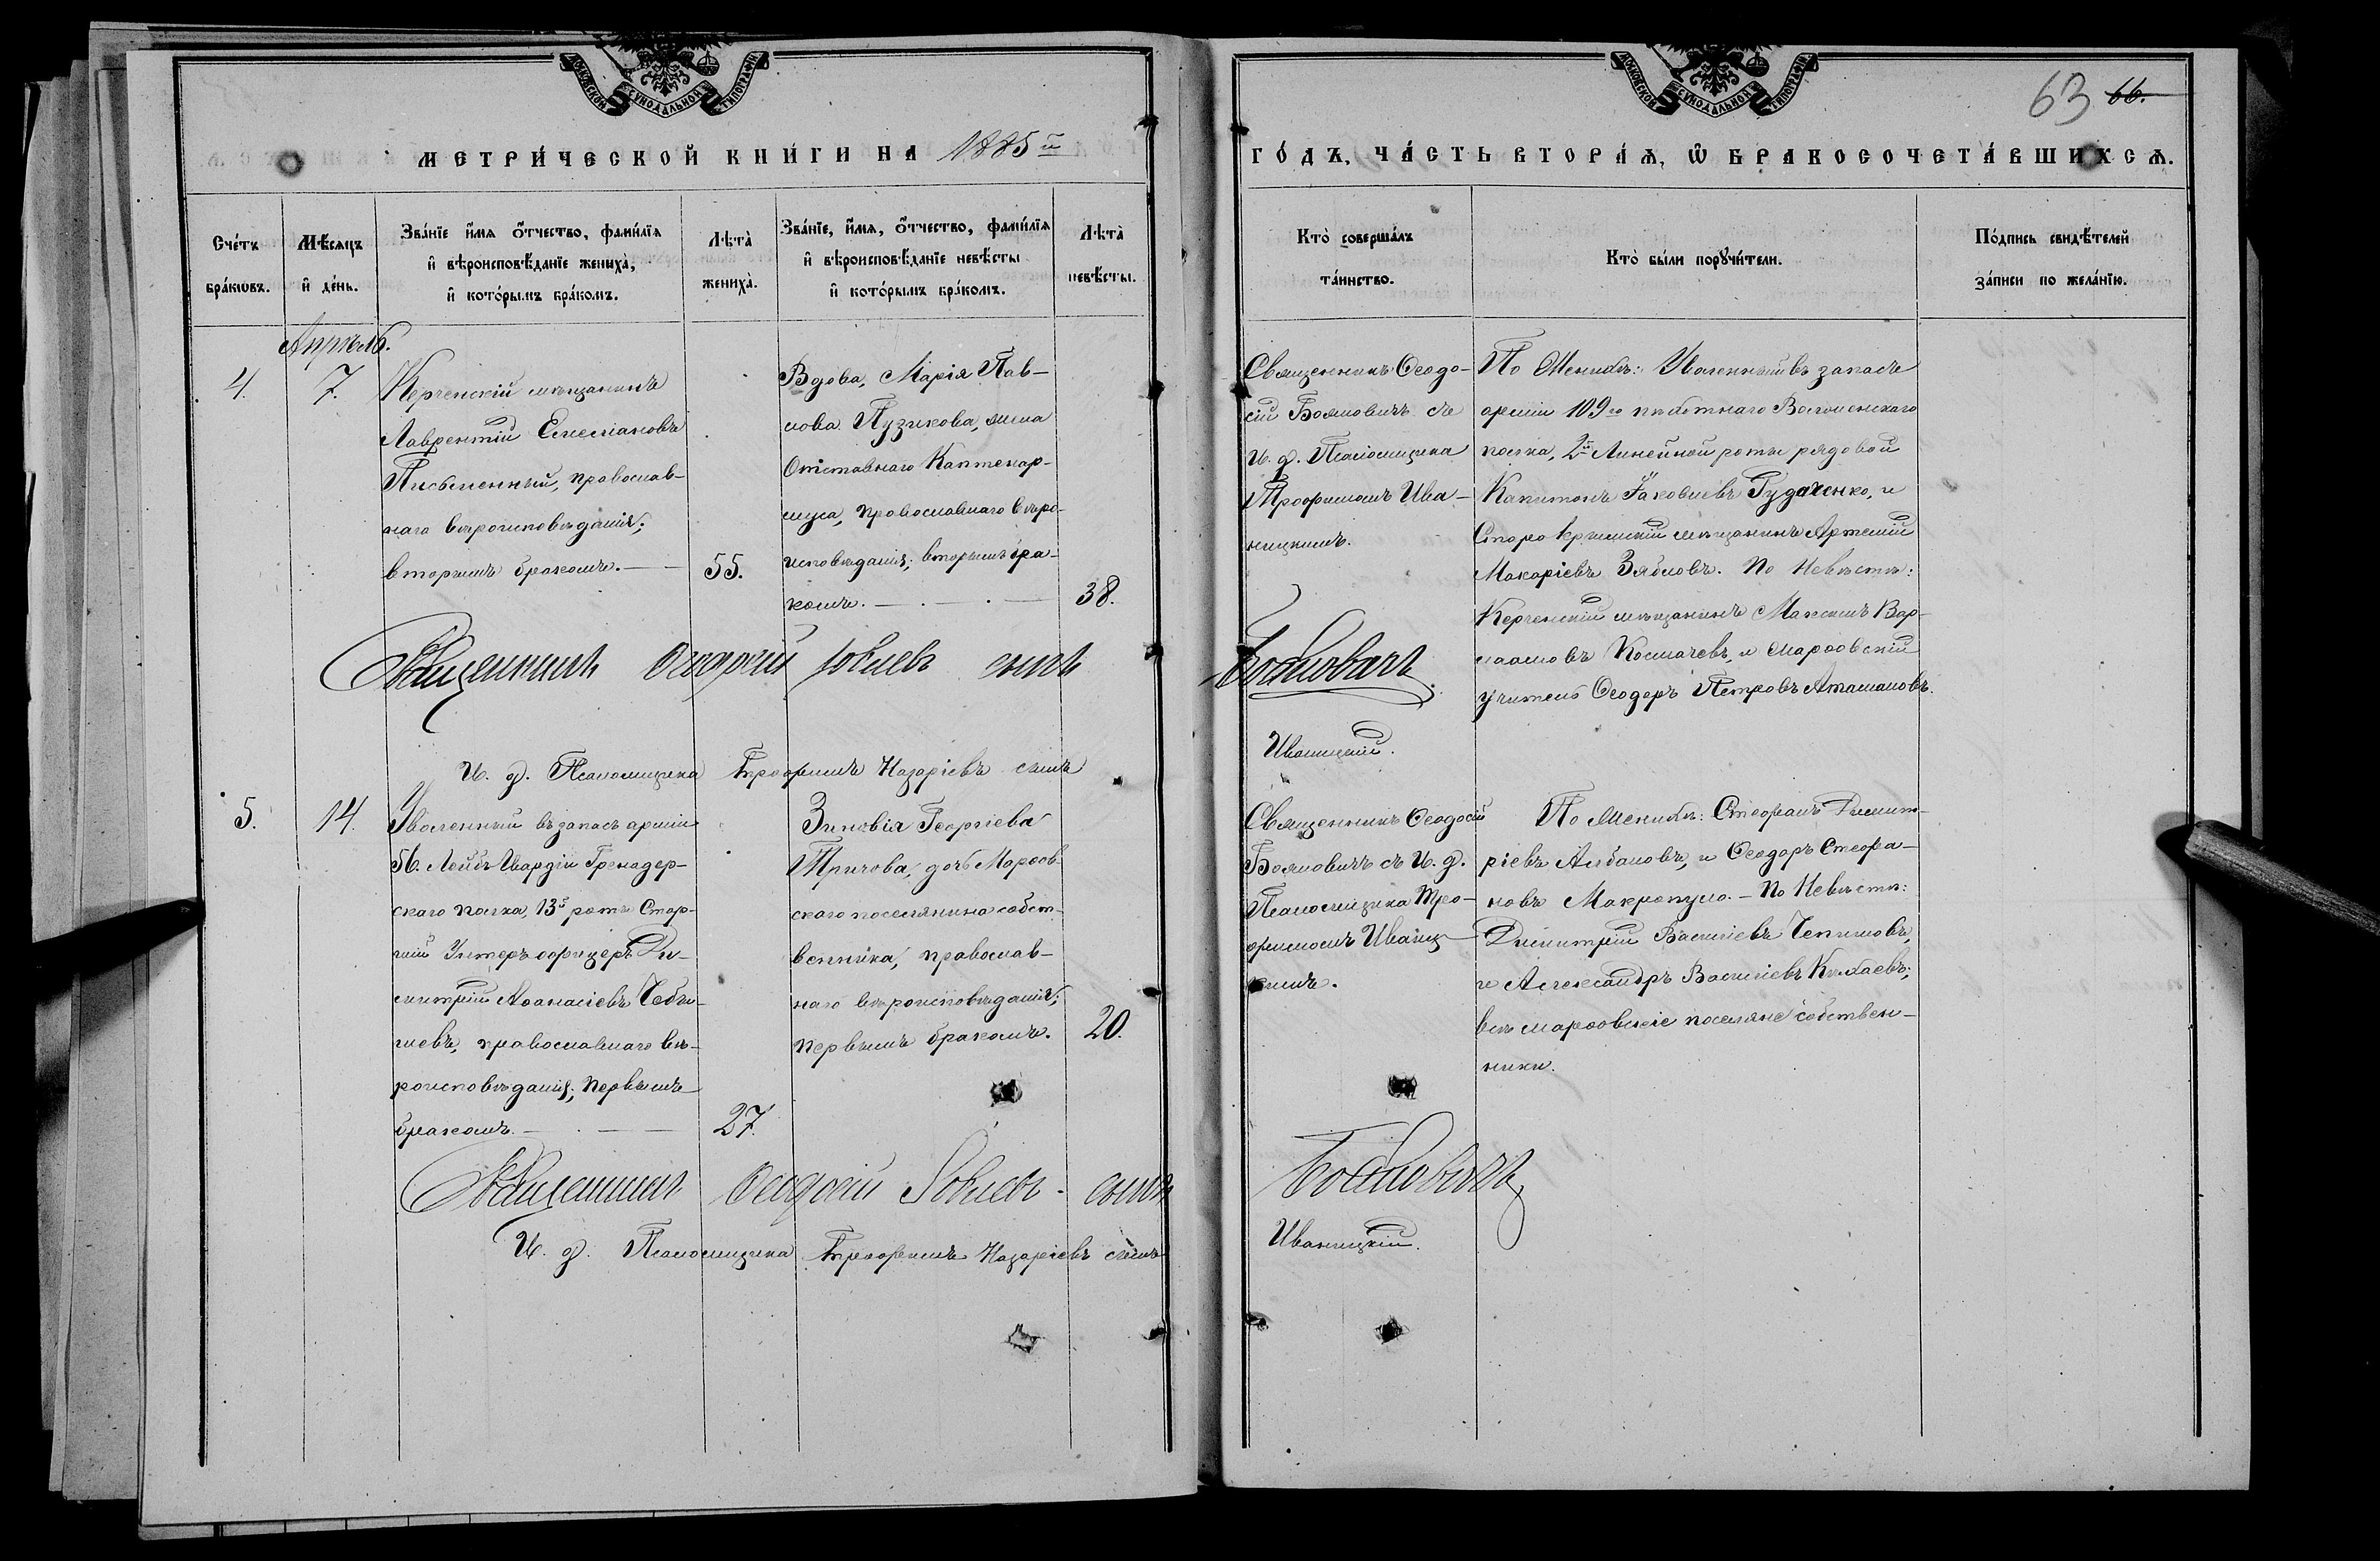 МОСКОВСКОЙ СѴНОДАЛЬНОЙ ТИПОГРАФІИ
МОСКОВСКОЙ СѴНОДАЛЬНОЙ ТИПОГРАФІИ
63 66.
МЕТРИ́ЧЕСКОЙ КНИ́ГИ НА 1885 й
ГО́ДЪ, ЧА́СТЬ ВТОРА́Ѧ, Ѡ҆ БРАКОСОЧЕТА́ВШИХСѦ.
Сче́тъ
бра́кѡвъ.
Мѣ́сѧцъ
и҆ де́нь.
Зва́нїе и҆́мѧ ѻ҆́тчество, фами́лїѧ
и҆ вѣроисповѣ́данїе жениха̀,
и҆ кото́рымъ бра́комъ.
Лѣта̀
жениха̀.
Зва́нїе, и҆́мѧ, ѻ҆́тчество, фами́лїѧ
и҆ вѣроисповѣ́данїе невѣ́сты
и҆ кото́рымъ бра́комъ.
Лѣта̀
невѣ́сты.
Кто̀ соверша́лъ
та́инство.
Кто̀ бы́ли порꙋчи́тели.
По́дпись свидѣ́телей
за́писи по жела́нїю.
Апрѣль.
4.
7.
Керченскій мѣщанинъ
Лаврентій Емеліановъ
Письменный, православ-
наго вѣроисповѣданія;
вторымъ бракомъ.
55.
Вдова, Марія Пав-
лова Пузикова, жена
Отставнаго Каптенар-
муса, православнаго вѣро-
исповѣданія; вторымъ бра-
комъ.
38.
Священникъ Ѳеодо-
сій Бояновичъ съ
И. д. Псаломщика
Трофимомъ Ива-
ницкимъ.
По Женихѣ: Уволенный въ запасъ
арміи 109го пѣхотнаго Волжскаго
полка, 2й Линейной роты рядовой
Капитонъ Іаковлевъ Гудаченко, и
Старо Крымскій мѣщанинъ Артемій
Макаріевъ Зябловъ. По Невѣстѣ:
Керченскій мѣщанинъ Максимъ Вар-
лаамовъ Космачевъ, и Марѳовскій
учитель Ѳеодоръ Петровъ Атамановъ.
Священникъ Ѳеодосій Іовлевъ сынъ Бояновичъ
И. д. Псаломщика Трофимъ Назаріевъ сынъ Иваницкій.
5.
14.
Уволенный въ запасъ арміи
56. Лейбъ Гвардіи Гренадер-
скаго полка, 13й роты Стар-
шій Унтеръ офицеръ Ди-
митрій Аѳанасіевъ Чоби-
чевъ, православнаго вѣ-
роисповѣданія; первымъ
бракомъ.
27.
Зиновія Георгіева
Тричова, дочь Марѳов-
скаго поселянина собст-
венника, православ-
наго вѣроисповѣданія;
первымъ бракомъ.
20.
Священникъ Ѳеодосій
Бояновичъ съ И. д.
Псаломщика Тро-
фимомъ Иваниц-
кимъ.
По Женихѣ: Стефанъ Димит-
ріевъ Албановъ, и Ѳеодоръ Стефа-
новъ Макропуло. - По Невѣстѣ:
Димитрій Василіевъ Чепиловъ,
и Александръ Василіевъ Кихаевъ;
всѣ марѳовскіе поселяне собствен-
ники.
Священникъ Ѳеодосій Іовлевъ сынъ Бояновичъ
И. д. Псаломщика Трофимъ Назаріевъ сынъ Иваницкій.